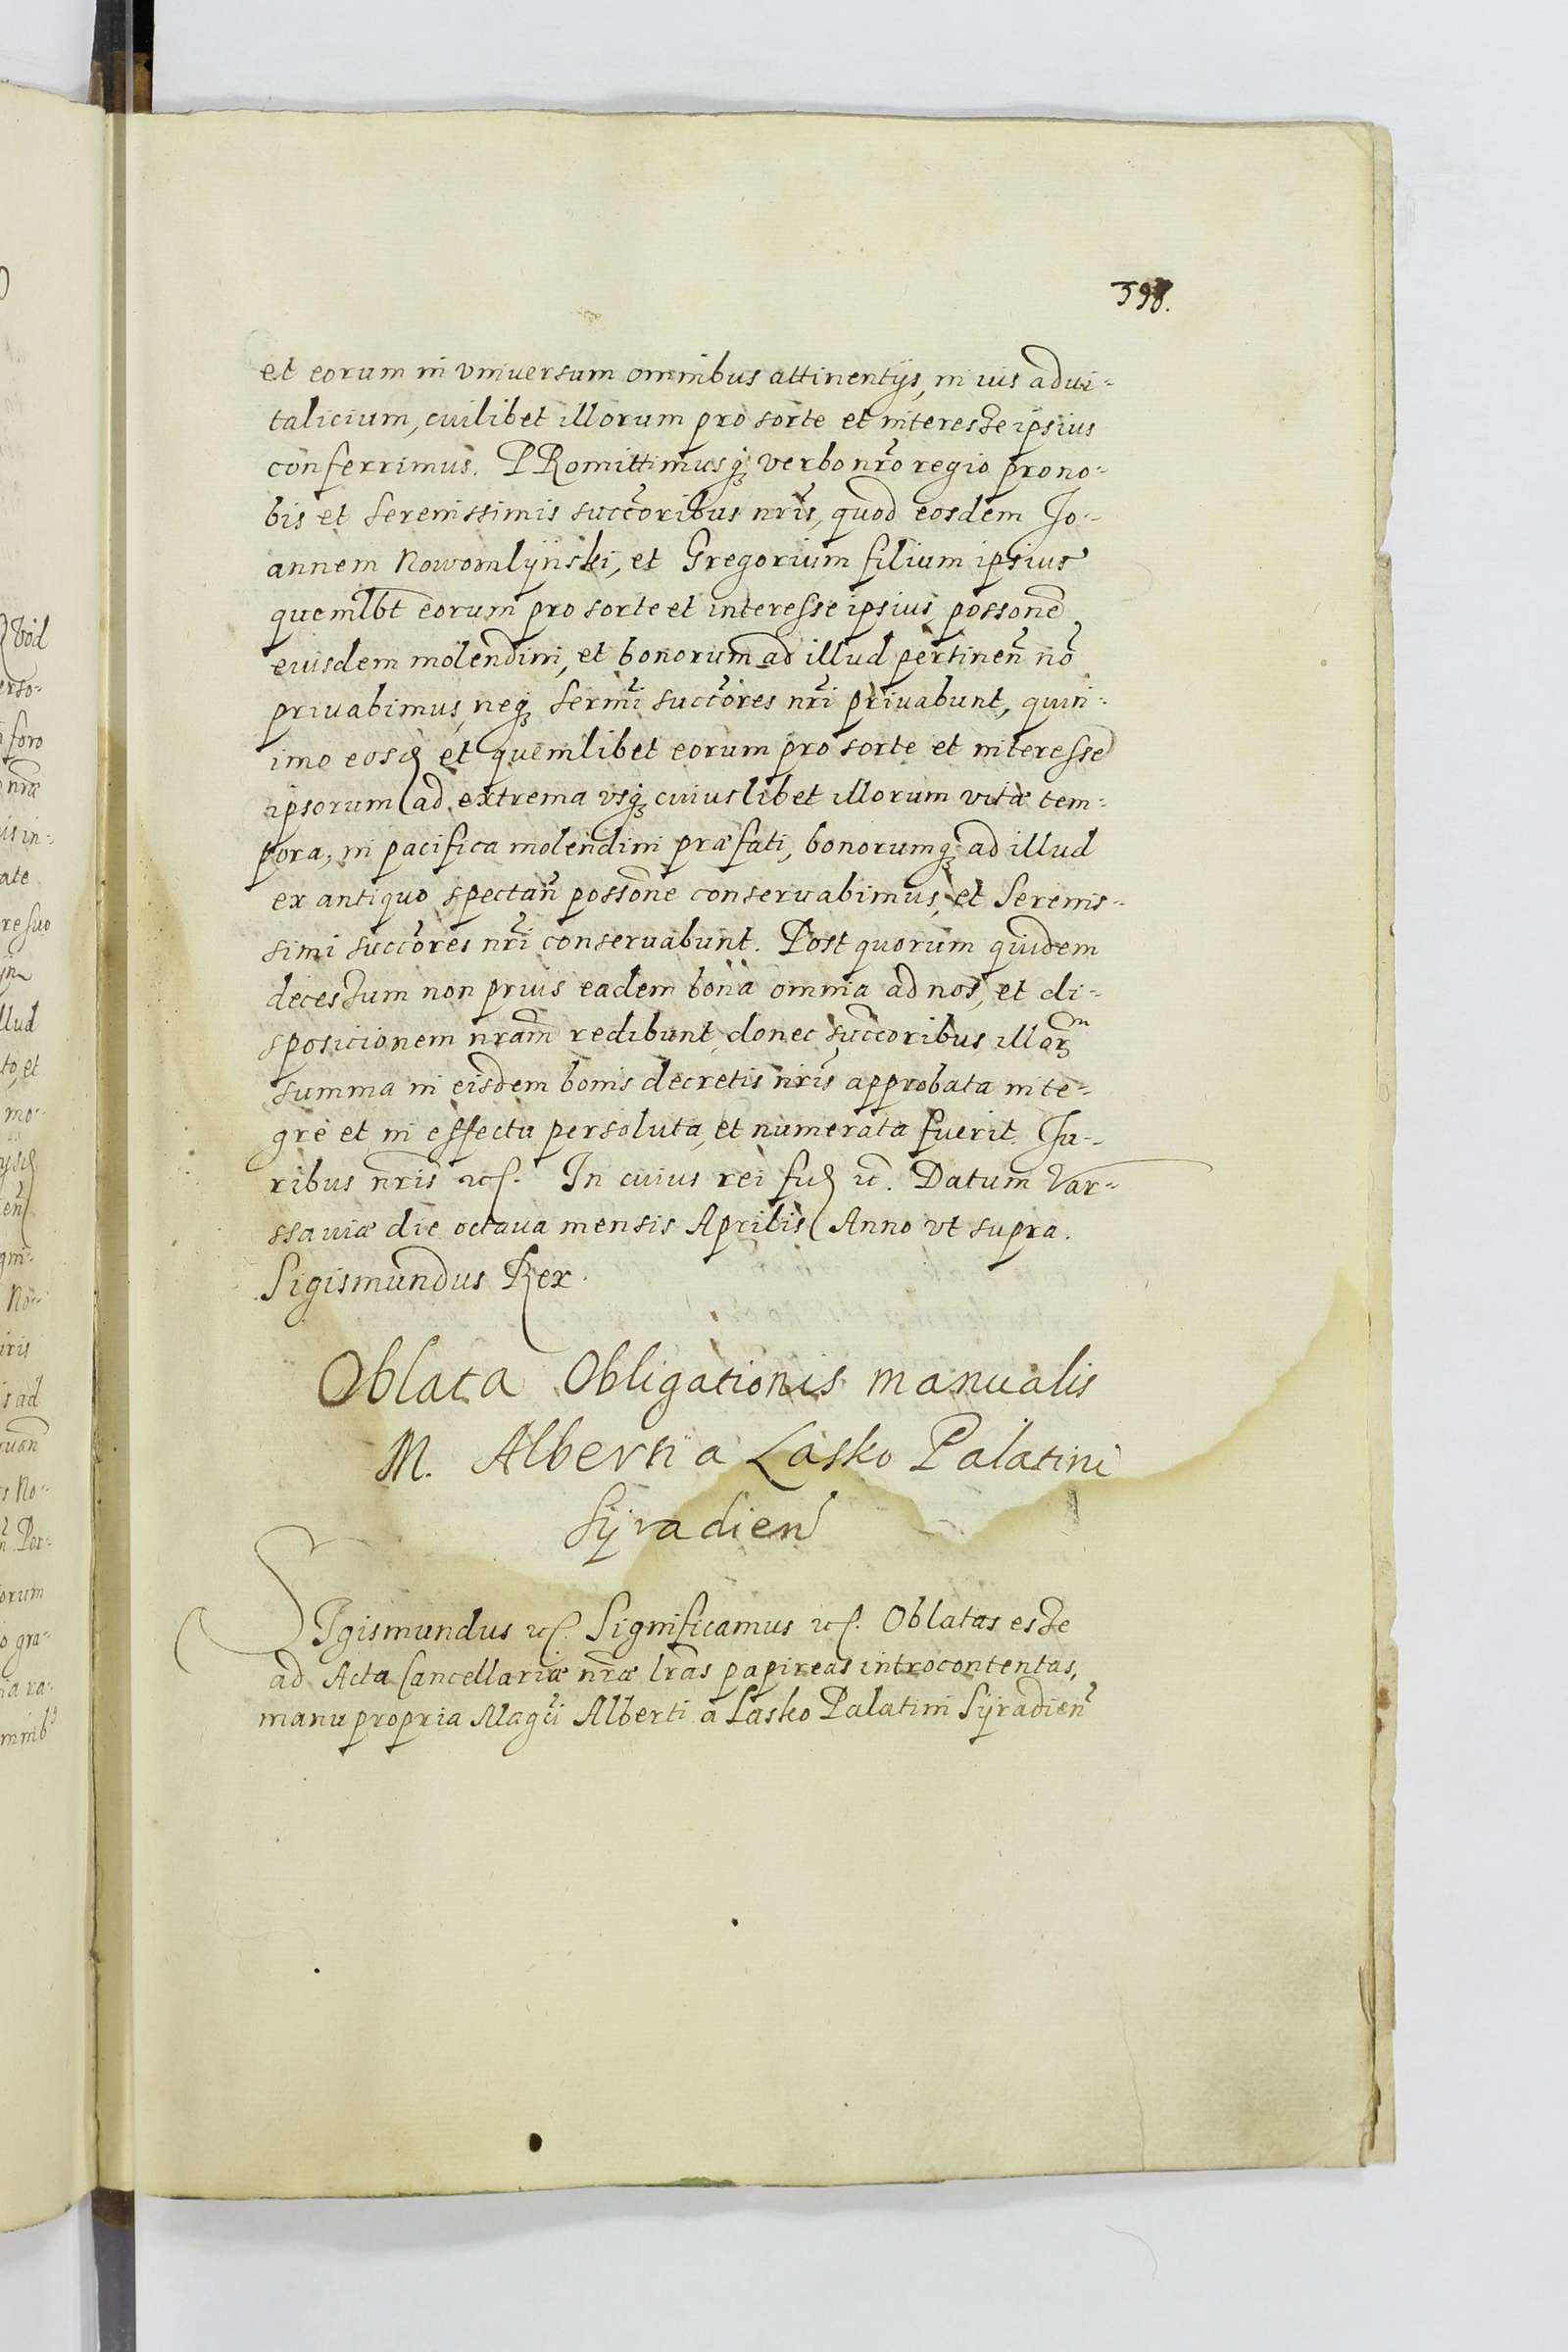 398.
et eorum in vniuersum omnibus attinentijs, in ius adui-
talicium, cuilibet illorum pro sorte et interesse ipsius
conferrimus. PRomittimusqꜗ verbo nr̃o regio pro no-
bis et serenissimis succ̃oribus nr̃is, quod eosdem Jo-
annem Nowomlÿnski, et Gregorium filium ipsius
quemlb̃t eorum pro sorte et interesse ipsius possone
euisdem molendini, et bonorum ad illud pertineñ nõ
priuabimus, neqꜗ serm̃i succ̃ores nr̃i priuabunt, quin-
imo eosđ et quemlibet eorum pro sorte et interesse
ipsorum ad extrema vsqꜗ cuiuslibet illorum vitæ tem-
pora, in pacifica molendini præfati, bonorumqꜗ ad illud
ex antiquo spectañ possõne conseruabimus, et Serenis-
simi succ̃ores nr̃i conseruabunt. Post quorum quidem
decessum non prius eadem bona omnia ad nos, et di-
sposicionem nr̃am redibunt, donec succ̃oribus illorm
summa in eisdem bonis decretis nr̃is approbata inte-
gre et in effectu persoluta, et numerata fuerit. Ju-
ribus nr̃is etc. In cuius rei fid etc. Datum Var-
ssauiæ die octaua mensis Aprilis Anno vt supra.
Sigismundus Rex.
Oblata Obligationis manualis
M. Alberti a Lasko Palatini
Sÿradien
SIgismundus etc. Significamus etc. Oblatas esse
ad Acta Cancellariæ nr̃æ lr̃as papireas introcontentas,
manu propria Magc̃i Alberti a Lasko Palatini Sÿradieñ